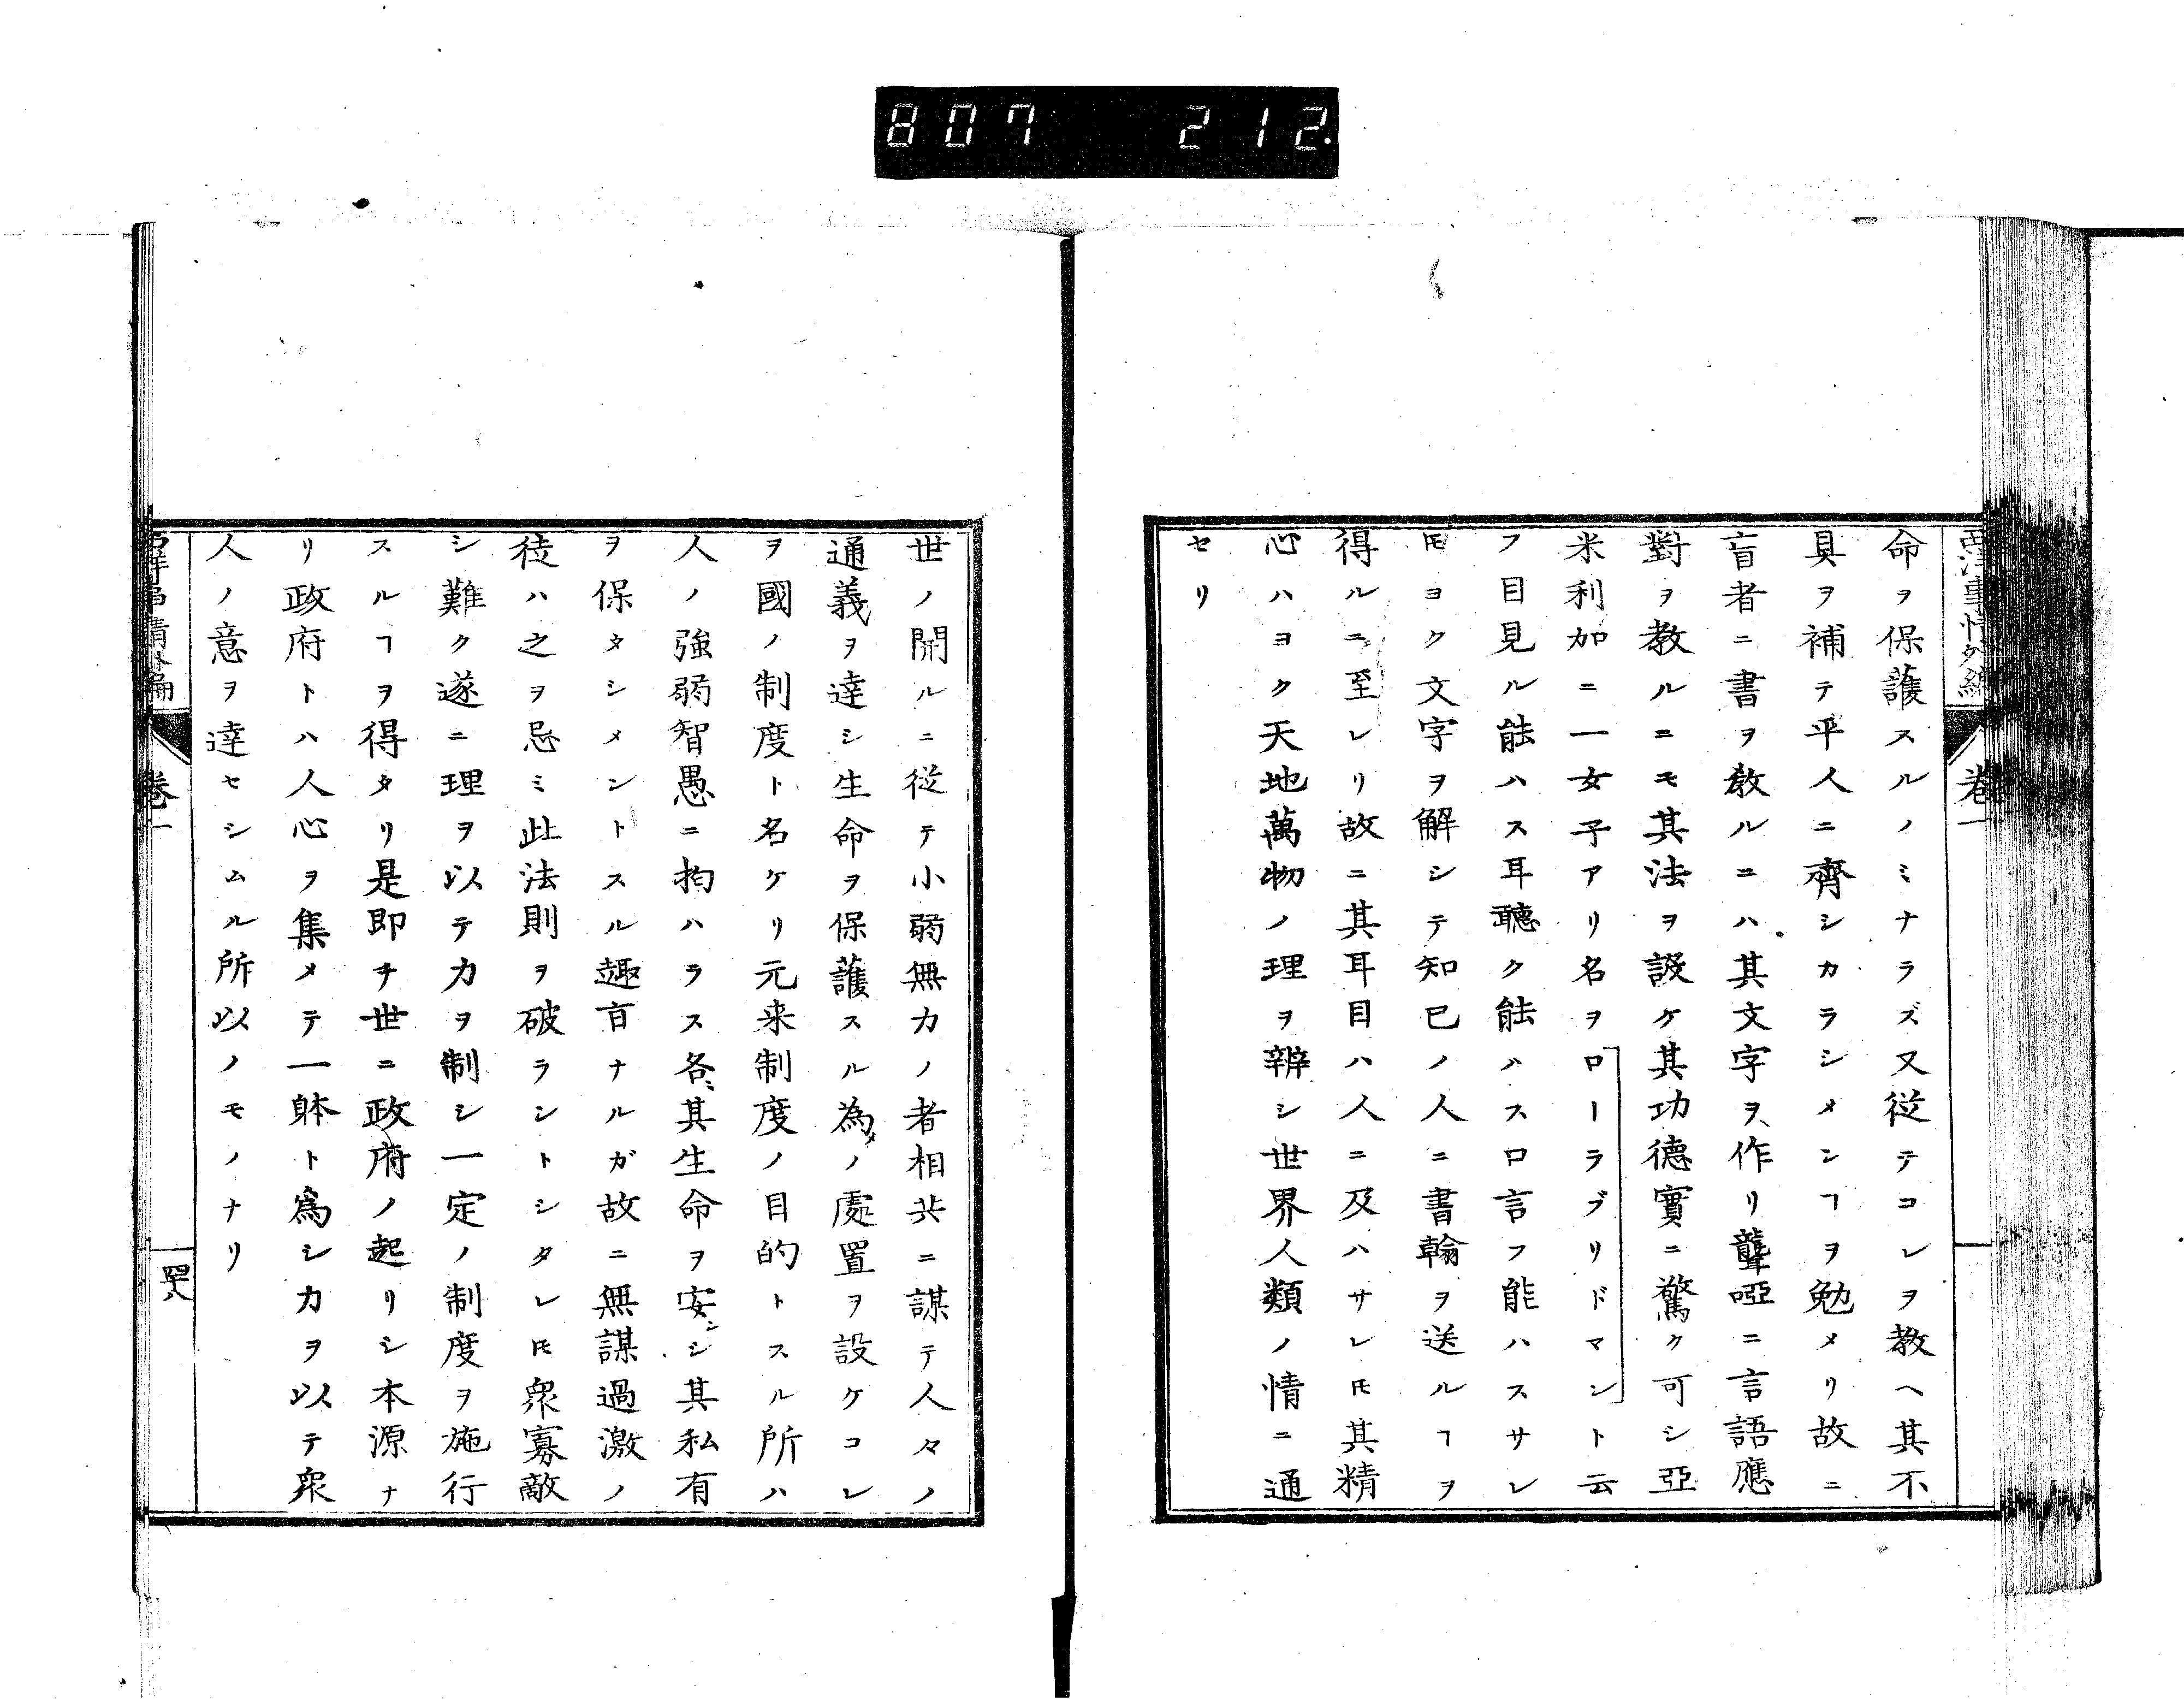 807 212.
西洋事情外編
卷一
命ヲ保護スルノミナラズ又從テコレヲ教ヘ其不
具ヲ補テ平人ニ齊シカラシメンヿヲ勉メリ故ニ
盲者ニ書ヲ教ルニハ其文字ヲ作リ聾啞ニ言語應
對ヲ教ルニモ其法ヲ設ケ其功德實ニ驚ク可シ亞
米利加ニ一女子アリ名ヲローラブリドマント云
フ目見ル能ハス耳聽ク能ハス口言フ能ハスサレ
𪜈ヨク文字ヲ解シテ知己ノ人ニ書翰ヲ送ルヿヲ
得ルニ至レリ故ニ其耳目ハ人ニ及ハサレ𪜈其精
心ハヨク天地萬物ノ理ヲ辨シ世界人類ノ情ニ通
セリ
世ノ開ルニ從テ小弱無力ノ者相共ニ謀テ人々ノ
通義ヲ達シ生命ヲ保護スル為メノ處置ヲ設ケコレ
ヲ國ノ制度ト名ケリ元来制度ノ目的トスル所ハ
人ノ強弱智愚ニ拘ハラス各〻其生命ヲ安シシ其私有
ヲ保タシメントスル趣旨ナルガ故ニ無謀過激ノ
徒ハ之ヲ忌ミ此法則ヲ破ラントシタレ𪜈衆寡敵
シ難ク遂ニ理ヲ以テ力ヲ制シ一定ノ制度ヲ施行
スルヿヲ得タリ是即チ世ニ政府ノ起リシ本源ナ
リ政府トハ人心ヲ集メテ一躰ト為シ力ヲ以テ衆
人ノ意ヲ達セシムル所以ノモノナリ
西洋事情外編
卷一
四十八